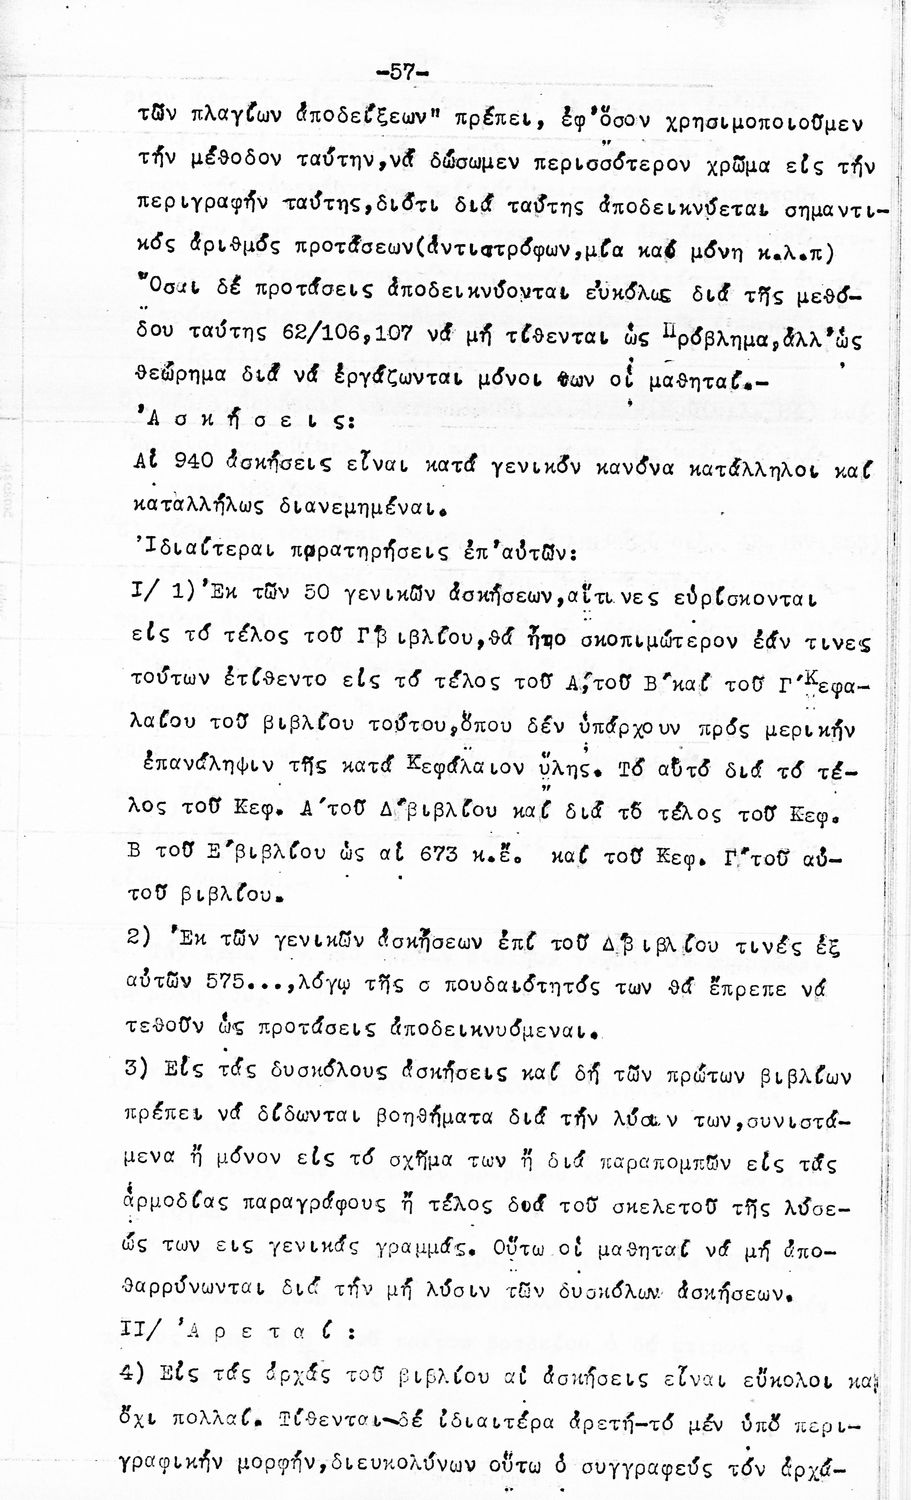 -57-
τῶν πλαγίων ἀποδείξεων" πρέπει, ἐφ'ὅσον χρησιμοποιοῦμεν
τήν μέθοδον ταύτην,νά δώσωμεν περισσότερον χρῶμα εἰς τήν
περιγραφήν ταύτης,διότι διά ταύτης ἀποδεικνύεται σημαντι-
κός ἀριθμός προτάσεων(ἀντιστρόφων,μία καί μόνη κ.λ.π)
Ὅσαι δέ προτάσεις ἀποδεικνύονται εὐκόλως διά τῆς μεθό-
δου ταύτης 62/106,107 νά μή τίθενται ὡς Πρόβλημα,ἀλλ'ὡς
θεώρημα διά νά ἐργάζωνται μόνοι των οἱ μαθηταί.-
Ἀ σ κ ή σ ε ι ς:
Αἱ 940 ἀσκήσεις εἶναι κατά γενικόν κανόνα κατάλληλοι καί
καταλλήλως διανεμημέναι.
Ἰδιαίτεραι παρατηρήσεις ἐπ'αὐτῶν:
I/ 1)Ἐκ τῶν 50 γενικῶν ἀσκήσεων,αἵτινες εὑρίσκονται
εἰς τό τέλος τοῦ Γ'βιβλίου,θά ἦτο σκοπιμώτερον ἐάν τινες
τούτων ἐτίθεντο εἰς τό τέλος τοῦ Α',τοῦ Β'καί τοῦ Γ'Κεφα-
λαίου τοῦ βιβλίου τούτου,ὅπου δέν ὑπάρχουν πρός μερικήν
ἐπανάληψιν τῆς κατά Κεφάλαιον ὕλης. Τό αὐτό διά τό τέ-
λος τοῦ Κεφ. Α'τοῦ Δ'βιβλίου καί διά τό τέλος τοῦ Κεφ.
Β τοῦ Ε'βιβλίου ὡς αἱ 673 κ.ἔ. καί τοῦ Κεφ. Γ'τοῦ αὐ-
τοῦ βιβλίου.
2) Ἐκ τῶν γενικῶν ἀσκήσεων ἐπί τοῦ Δ'βιβλίου τινές ἐξ
αὐτῶν 575...,λόγῳ τῆς σπουδαιότητός των θά ἔπρεπε νά
τεθοῦν ὡς προτάσεις ἀποδεικνυόμεναι.
3) Εἰς τάς δυσκόλους ἀσκήσεις καί δή τῶν πρώτων βιβλίων
πρέπει νά δίδωνται βοηθήματα διά τήν λύσιν των,συνιστά-
μενα ἤ μόνον εἰς τό σχῆμα των ἤ διά παραπομπῶν εἰς τάς
ἁρμοδίας παραγράφους ἤ τέλος διά τοῦ σκελετοῦ τῆς λύσε-
ώς των εις γενικάς γραμμάς. Οὕτω οἱ μαθηταί νά μή ἀπο-
θαρρύνωνται διά τήν μή λύσιν τῶν δυσκόλων ἀσκήσεων.
II/ Ἀ ρ ε τ α ί :
4) Εἰς τάς ἀρχάς τοῦ βιβλίου αἱ ἀσκήσεις εἶναι εὔκολοι καί
ὄχι πολλαί. Τίθενται-δέ ἰδιαιτέρα ἀρετή-τό μέν ὑπό περι-
γραφικήν μορφήν,διευκολύνων οὕτω ὁ συγγραφεύς τόν ἀρχά-